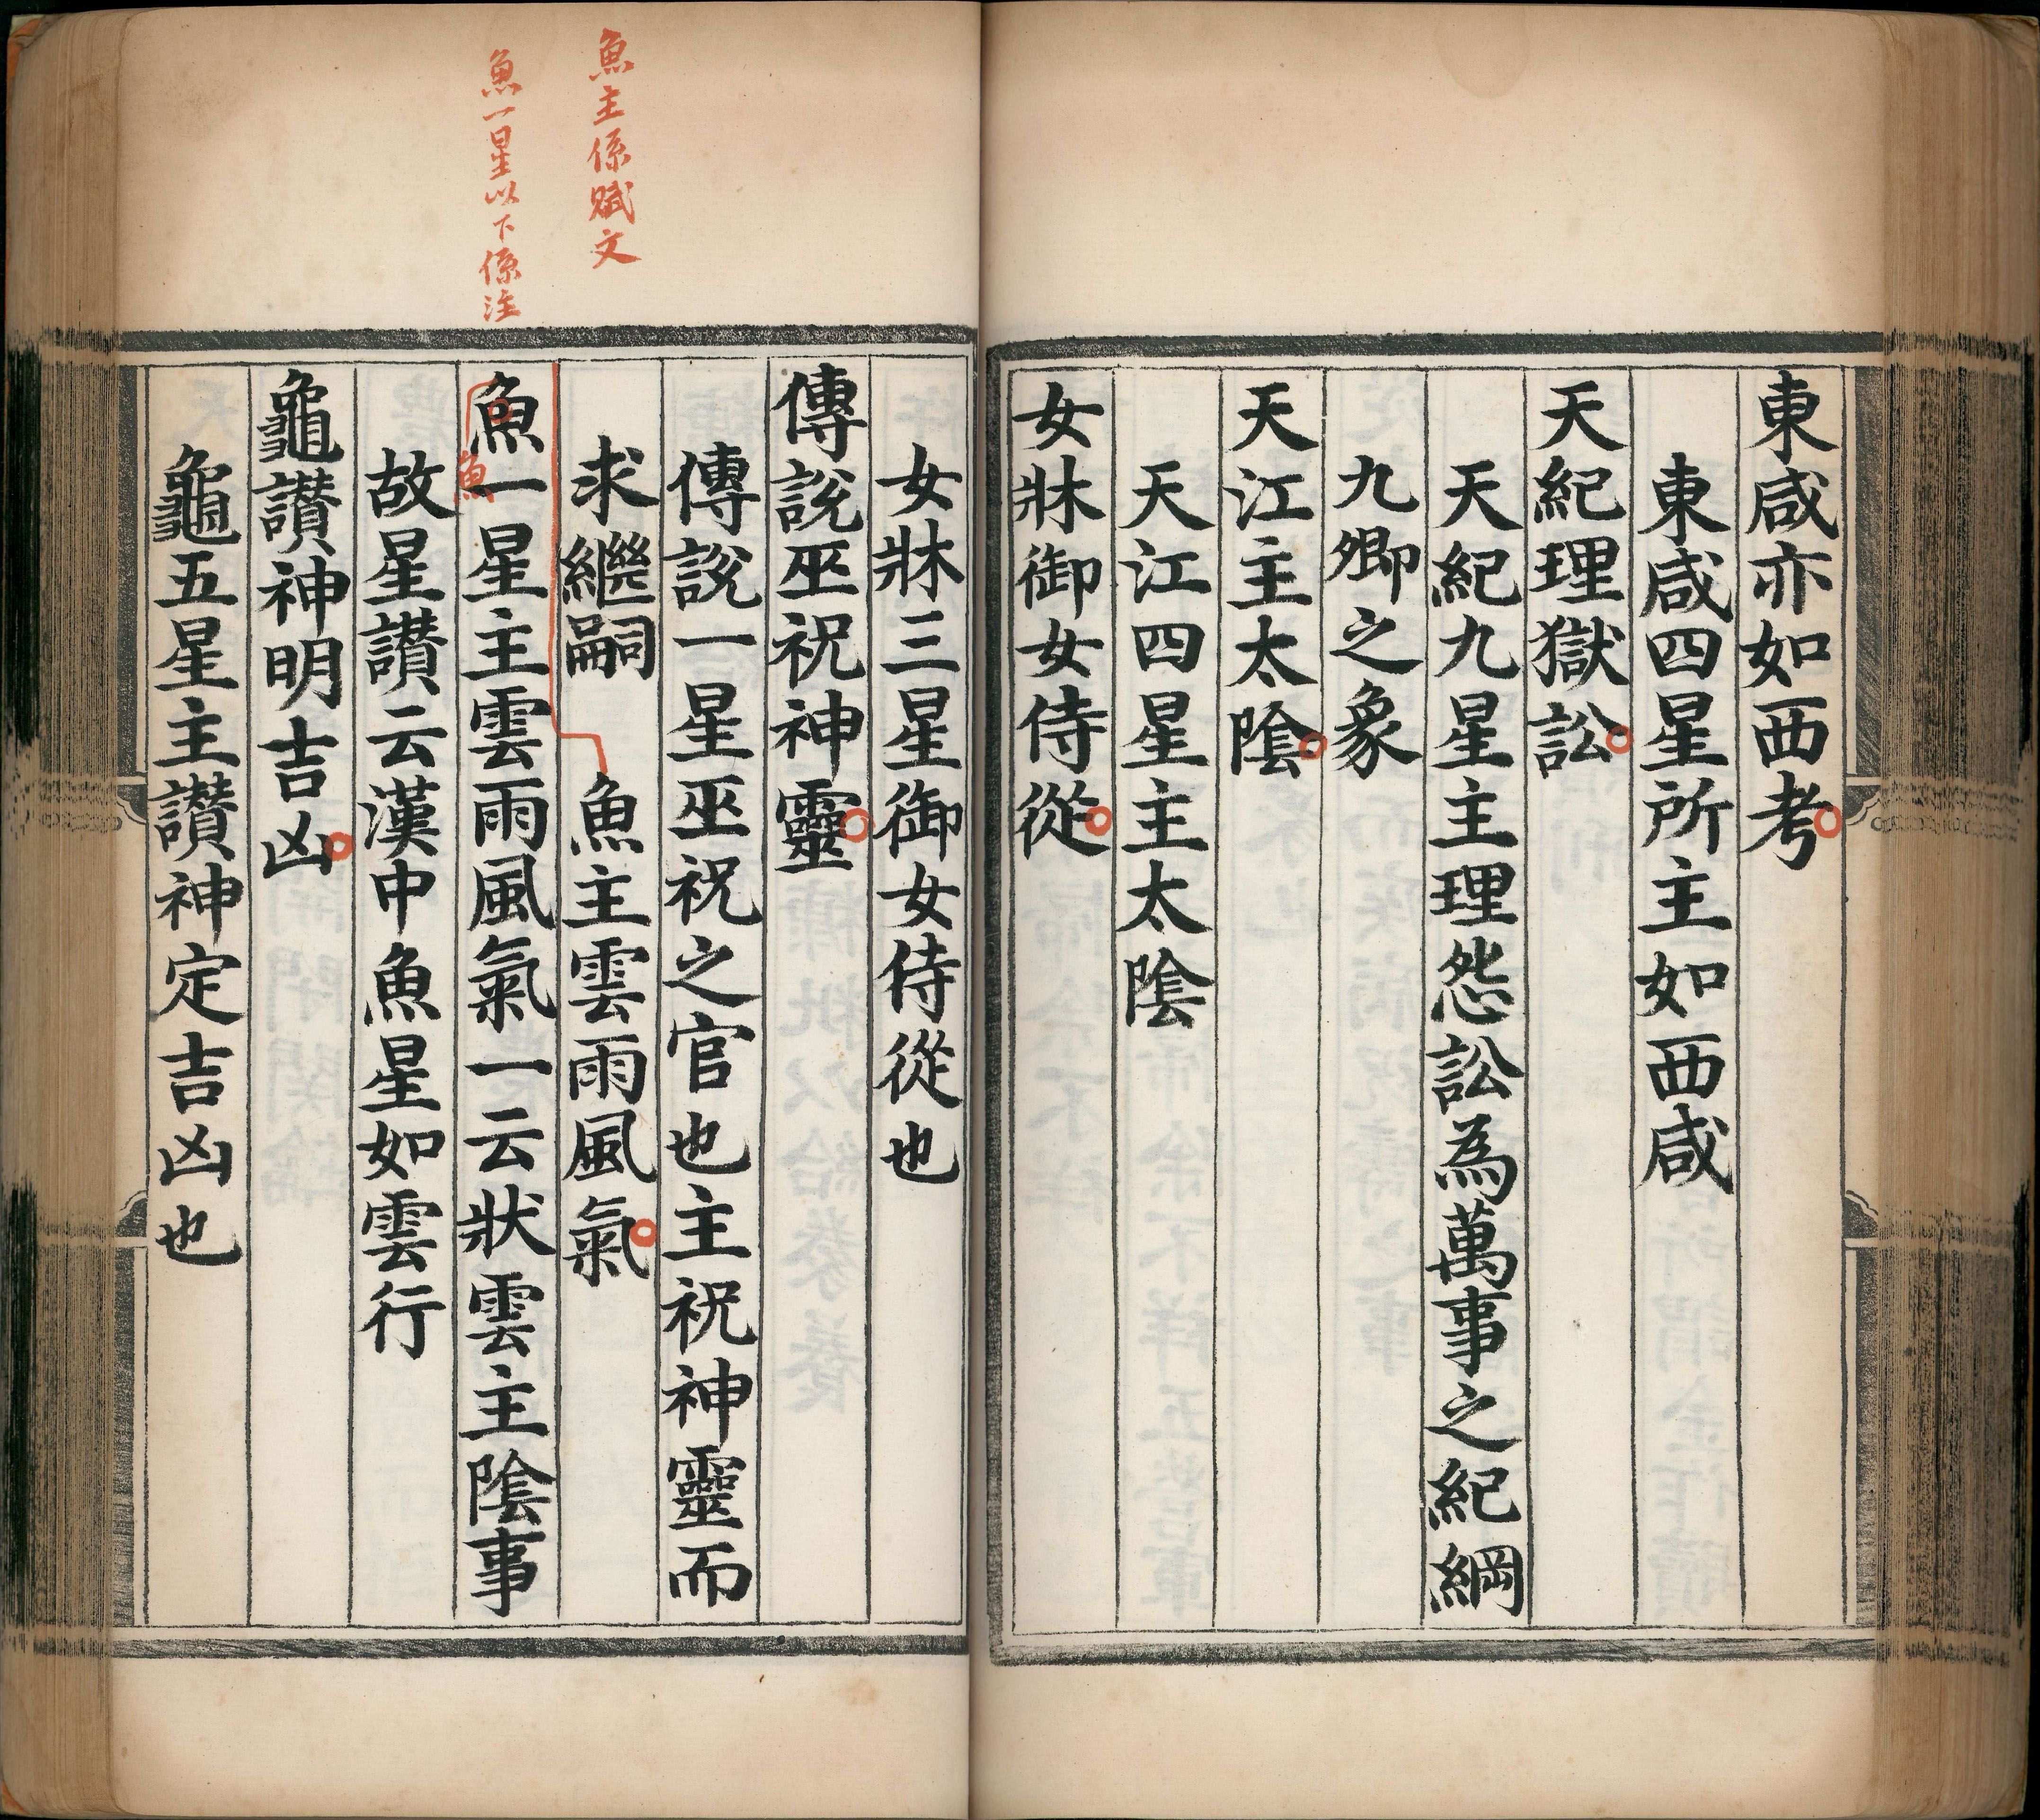 東咸亦如西考
東咸四星所主如西咸
天紀理獄訟
天紀九星主理怨訟為萬事之紀綱
九卿之象
天江主太陰
天江四星主太陰
女牀御女侍從
女牀三星御女侍從也
傳說巫祝神靈
傳說一星巫祝之官也主祝神靈而
求繼嗣 魚主雲雨風氣
魚一星主雲雨風氣一云狀雲主陰事
魚
故星讃云漢中魚星如雲行
龜讃神明吉凶
龜五星主讃神定吉凶也
魚主係賦文
魚一星以下係注